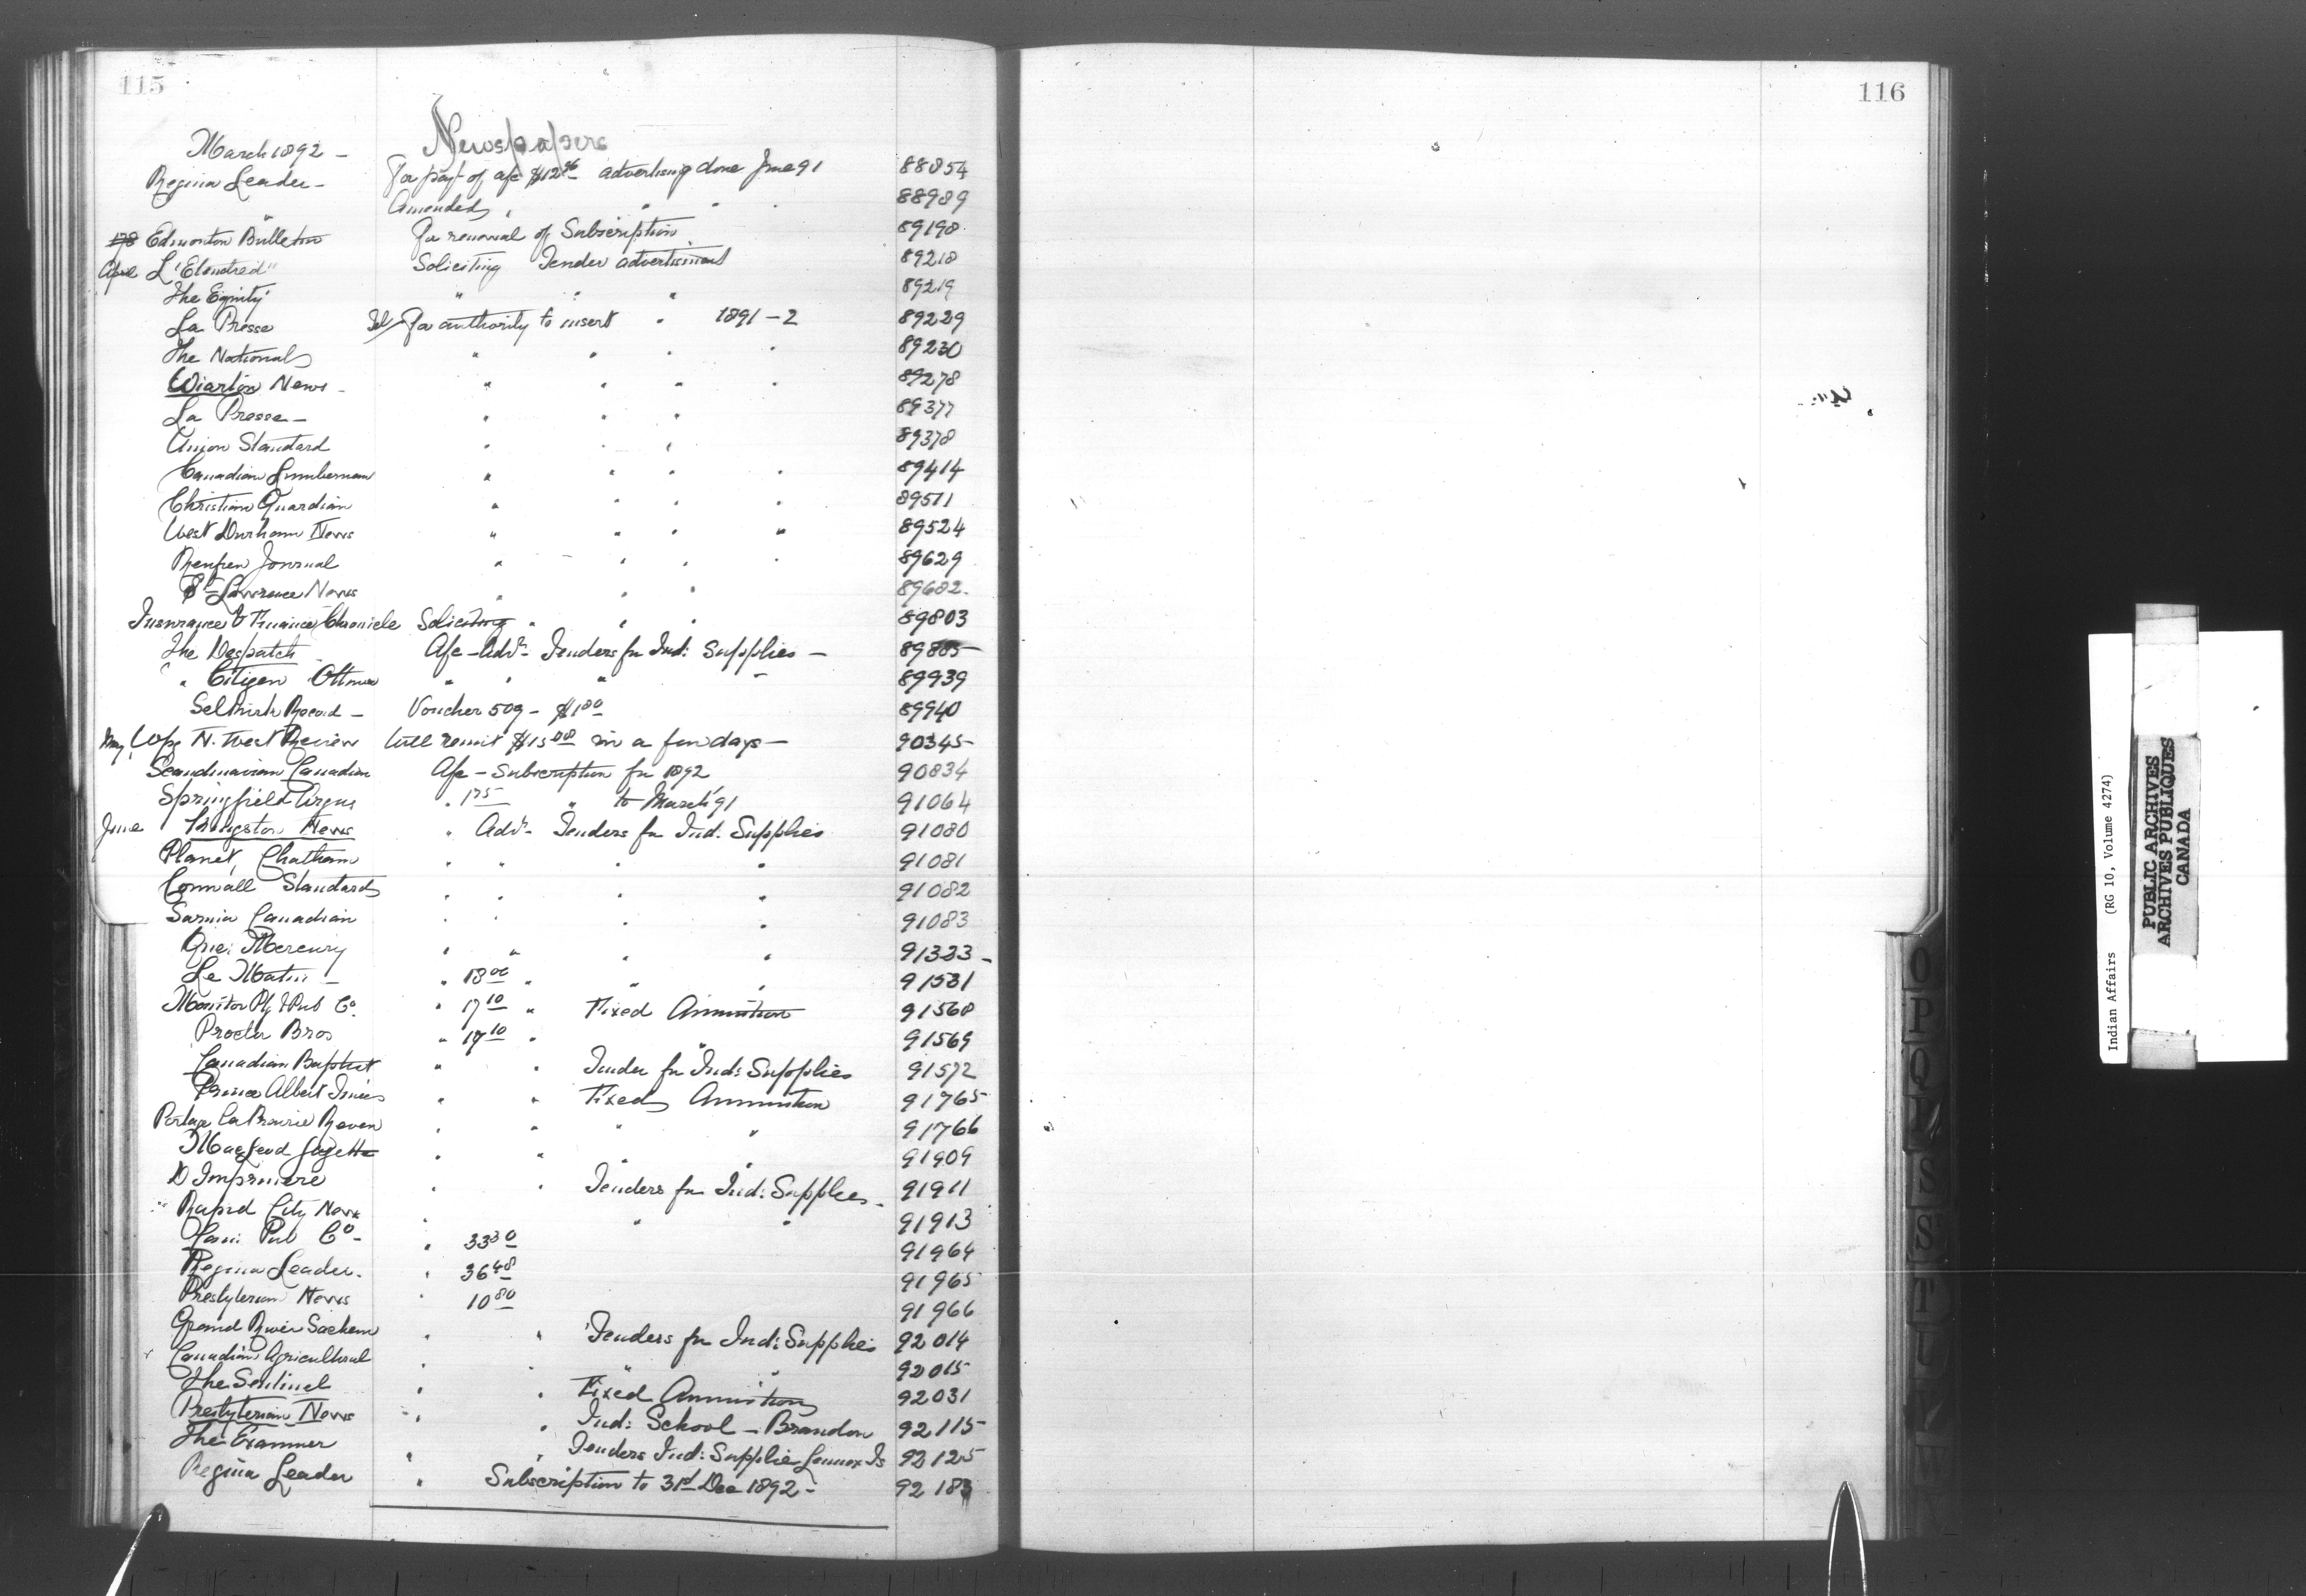 115
Newspapers
March 1892 -
Regina Leader - For payt of a/c $12.96 advertising done June 91 88854
Amended " " " " 88989
Edmonton Bulletin For renewal of Subscription 89198
April L'Etendred" Soliciting Tender advertisment 89218
The Equity " " " 89219
La Presse Tel/ For authority to insert " 1891-2 89229
The National " " " " 89230
Wiarton News - " " " " 89278
La Presse - " " " 89377
Union Standard " " " 89378
Canadian Lumberman " " " " 89414
Christian Guardian " " " " 89511
West Durham News " " " " 89524
Renfrew Journal " " " " 89629
St Lawrence News " " " 89682.
Insurance & Finance Chronicle Soliciting " " " 89803
The Despatch A/c - Advt- Tenders for Ind: Supplies - 89885
" Citizen Ottawa " " " " 89939
Selkirk Record - Voucher 509 - $1.80 89940
May N. West Review Will remit $15.00 in a few days - 90345
Scandinavian Canadian A/c - Subscription for 1892 90834
Springfield Argus " 1.75 " to March '91 91064
June Kingston News " Advt- Tenders for Ind. Supplies 91080
Planet, Chatham " " " " 91081
Cornwall Standard " " " " 91082
Sarnia Canadian " " " " 91083
Que: Mercury " " " " 91383 -
Le Matin - " 18.00 " " " 91531
Monitor Ptg & Pub Co. " 17.10 " Fixed Ammunition 91568
Procter Bros " 17.10 " " 91569
Canadian Baptist " " Tender for Ind: Supplies 91572
Prince Albert Times " " Fixed Ammunition 91765
Portage La Prairie Review " " " " 91766
MacLeod Gazette " " " " 91909
D Imprimerie " " Tenders for Ind: Supplies - 91911
Rapid City News " " " 91913
Cam: Pub Co - " 33.30 91964
Regina Leader. " 36.48 91965
Presbyterian News " 10.80 91966
Grand River Sachem " " Tenders for Ind: Supplies 92014
Canadian Agricultural " " " " 92015
The Sentinel " " Fixed Ammunition 92031
Presbyterian News " " Ind: School - Brandon 92115
The Examiner " " Tenders Ind: Supplies Lennox Is 92125
Regina Leader " Subscription to 31st Dec 1892 - 92183
116
O
P
Q
R
S
St
T
U
V
W
Indian Affairs (RG 10, Volume 4274)
PUBLIC ARCHIVES
ARCHIVES PUBLIQUES
CANADA